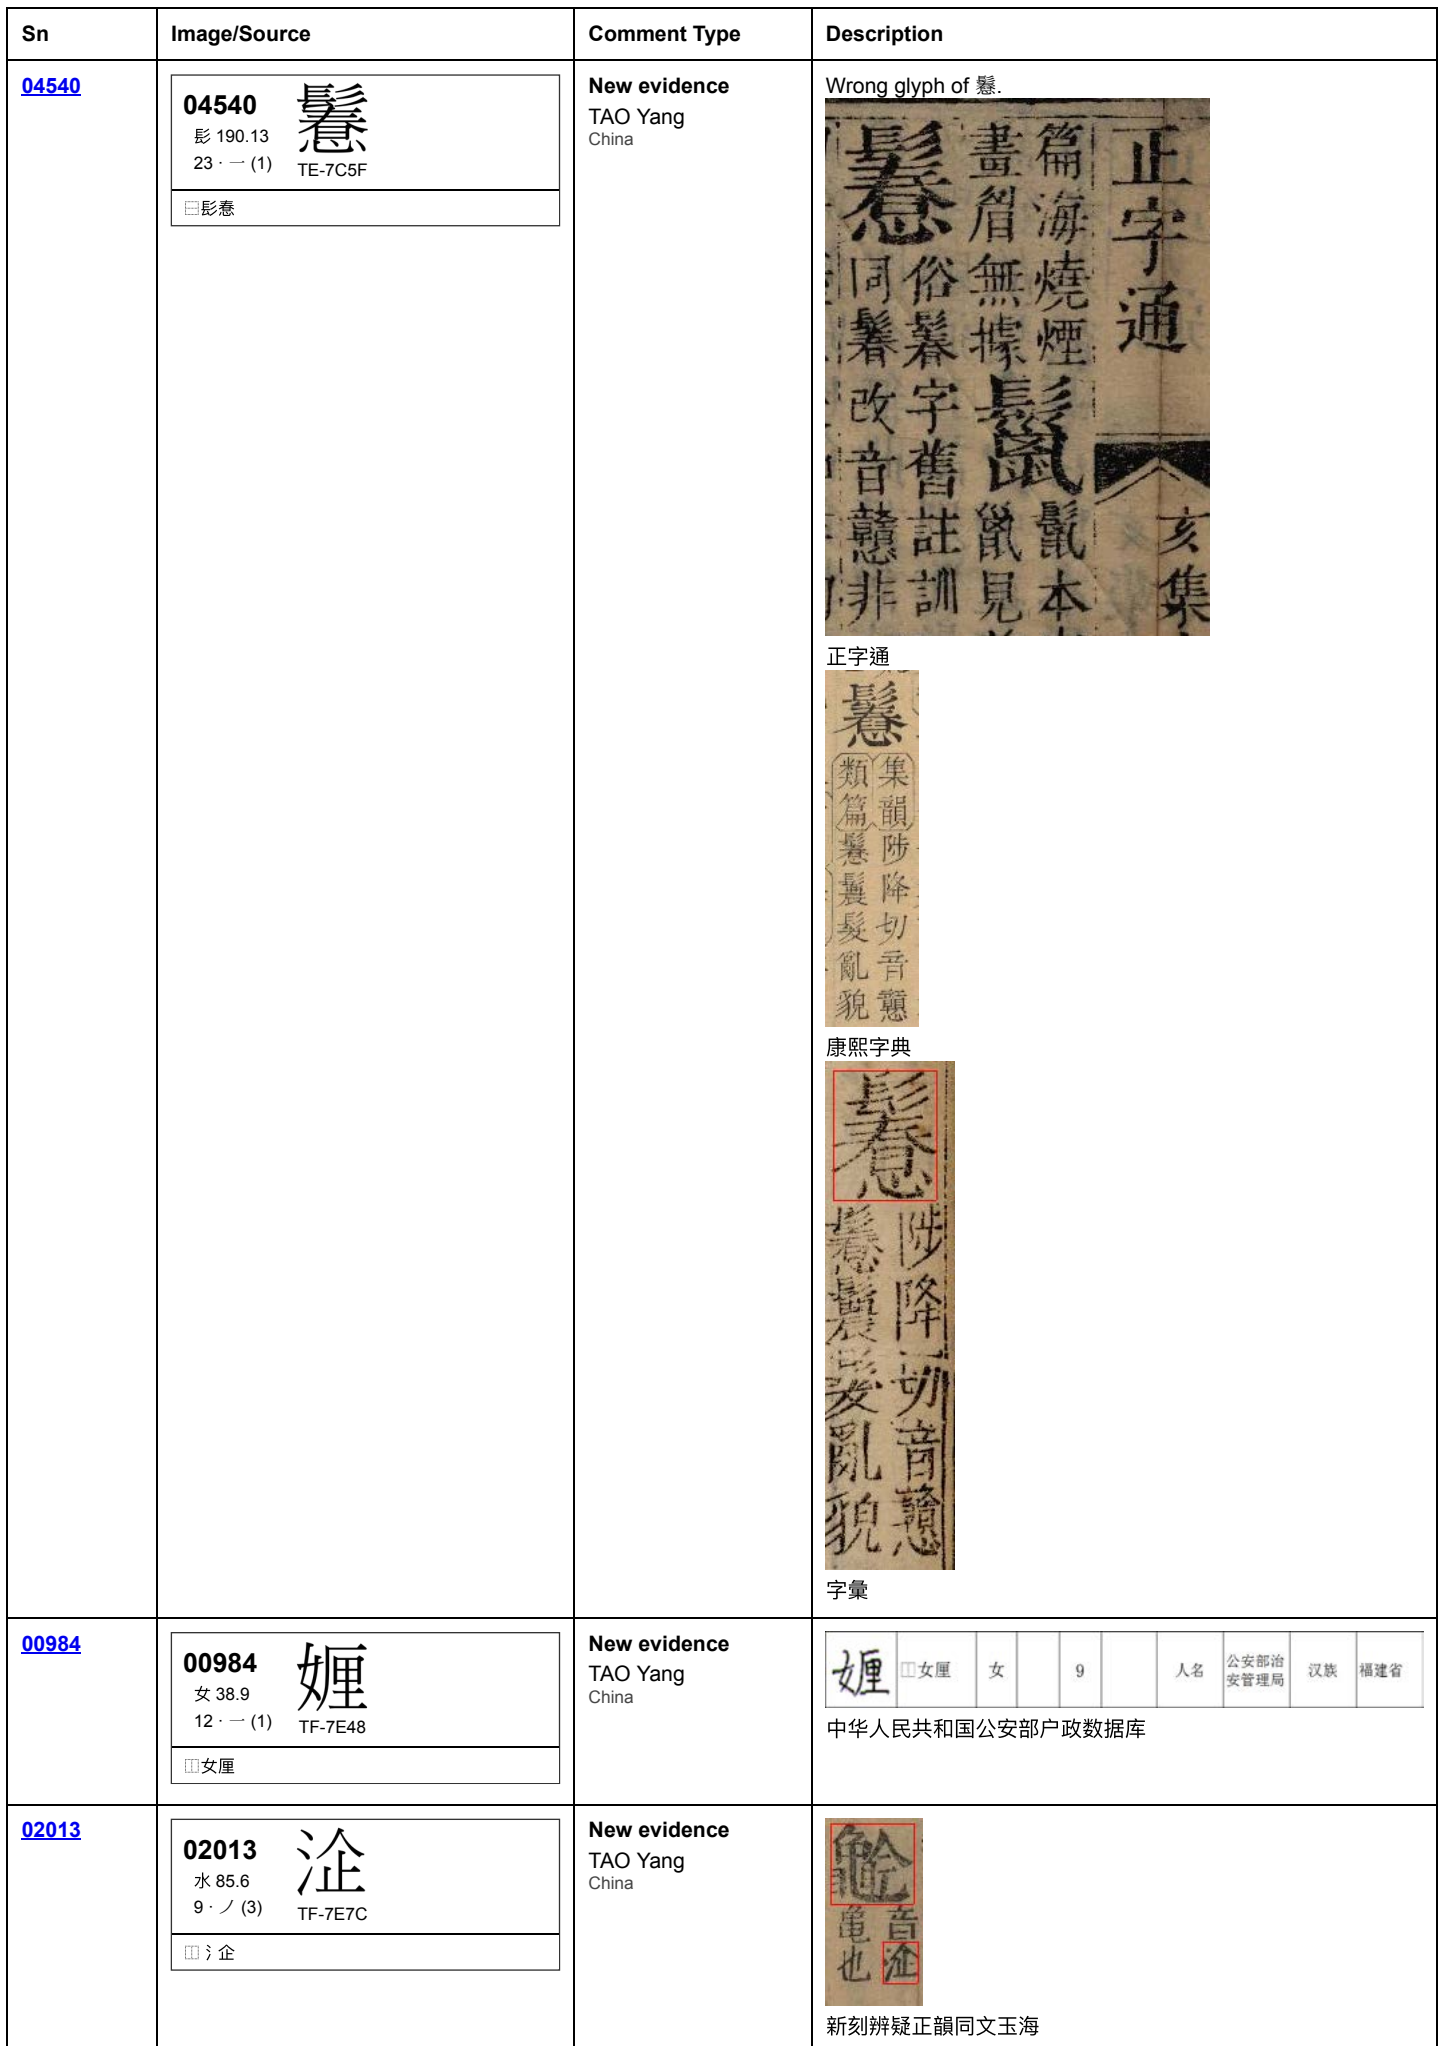 Sn Image/Source Comment Type Description
04540
04540
髟 190.13
23 · 一 (1)
TE-7C5F
⿱髟惷
New evidence
TAO Yang
China
Wrong glyph of 鬊.
正字通
亥集
篇海燒煙
畫眉無據
鬣本
見
俗鬊字舊註訓
同鬊改音戇非
正字通
集韻陟降切音戇
類篇鬤髮亂貌
康熙字典
陟降切音戇
鬤髮亂貌
字彙
00984
00984
女 38.9
12 · 一 (1)
TF-7E48
⿰女厘
New evidence
TAO Yang
China
⿰女厘 女 9 人名 公安部治安管理局 汉族 福建省
中华人民共和国公安部户政数据库
02013
02013
水 85.6
9 · ノ (3)
TF-7E7C
⿰氵企
New evidence
TAO Yang
China
音
黽也
新刻辨疑正韻同文玉海